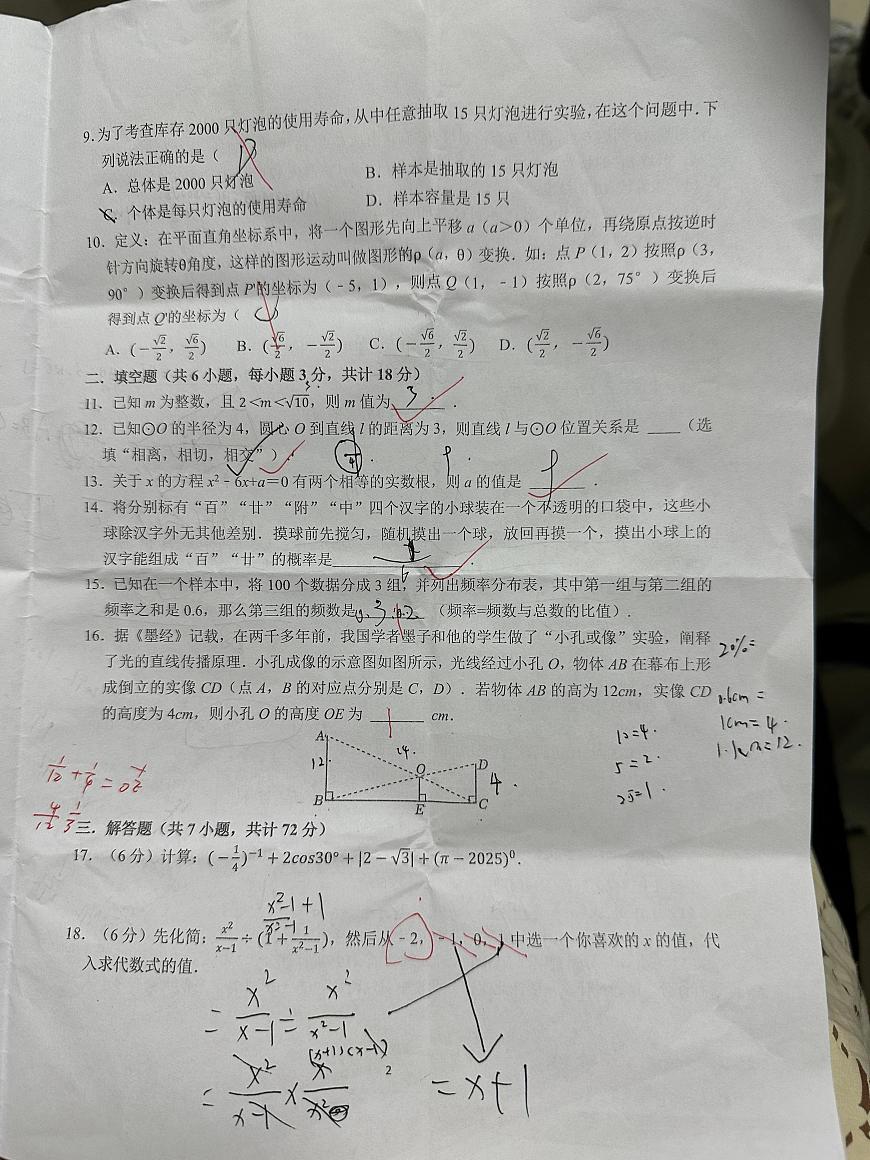 9.为了考查库存 2000 只灯泡的使用寿命,从中任意抽取 15 只灯泡进行实验,在这个问题中.下
列说法正确的是(
A. 总体是 2000 只灯泡 B. 样本是抽取的 15 只灯泡
C. 个体是每只灯泡的使用寿命 D. 样本容量是 15 只
10. 定义:在平面直角坐标系中,将一个图形先向上平移 a(a>0)个单位,再绕原点按逆时
针方向旋转θ角度,这样的图形运动叫做图形的ρ(a,θ)变换.如:点 P(1,2)按照ρ(3,
90°)变换后得到点 P'的坐标为(﹣5,1),则点 Q(1,﹣1)按照ρ(2,75°)变换后
得到点 Q'的坐标为( )
A. (−√2/2, √6/2) B. (√6/2, −√2/2) C. (−√6/2, √2/2) D. (√2/2, −√6/2)
二、填空题(共 6 小题,每小题 3 分,共计 18 分)
11、已知 m 为整数,且 2<m<√10,则 m 值为 3 .
12、已知⊙O 的半径为 4,圆心 O 到直线 l 的距离为 3,则直线 l 与⊙O 位置关系是 ____(选
填“相离,相切,相交”).
13、关于 x 的方程 x²﹣6x+a=0 有两个相等的实数根,则 a 的值是 9 .
14、将分别标有“百”“廿”“附”“中”四个汉字的小球装在一个不透明的口袋中,这些小
球除汉字外无其他差别.摸球前先搅匀,随机摸出一个球,放回再摸一个,摸出小球上的
汉字能组成“百”“廿”的概率是 .
15、已知在一个样本中,将 100 个数据分成 3 组,并列出频率分布表,其中第一组与第二组的
频率之和是 0.6,那么第三组的频数是 (频率=频数与总数的比值).
16、据《墨经》记载,在两千多年前,我国学者墨子和他的学生做了“小孔或像”实验,阐释
了光的直线传播原理.小孔成像的示意图如图所示,光线经过小孔 O,物体 AB 在幕布上形
成倒立的实像 CD(点 A,B 的对应点分别是 C,D).若物体 AB 的高为 12cm,实像 CD
的高度为 4cm,则小孔 O 的高度 OE 为 ______ cm.
20%=
0.6cm=
1cm=4.
12=4.
5=2.
A
12
B
O
E
D
C
4
三. 解答题(共 7 小题,共计 72 分)
17. (6 分)计算:(−1/4)⁻¹ + 2cos30° + |2 − √3| + (π − 2025)⁰.
x²-1+1
x²-1
18. (6 分)先化简:x²/(x−1) ÷ (1 + 1/(x²−1)),然后从﹣2,﹣1,0,1 中选一个你喜欢的 x 的值,代
入求代数式的值.
= x²/(x-1) ÷ x²/(x²-1)
(x+1)(x-1)
= x²/(x-1) ×
= x+1